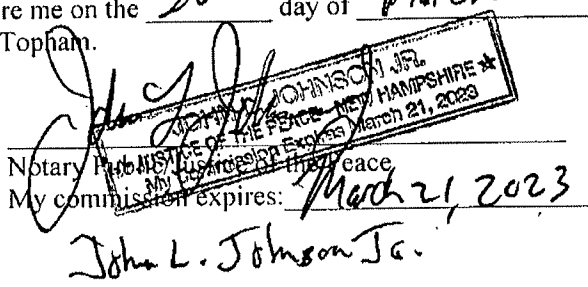 re me on the 30 day of March
Topham.
JOHN L. JOHNSON JR.
★ JUSTICE OF THE PEACE - NEW HAMPSHIRE ★
My Commission Expires March 21, 2023
Notary Public/Justice of the Peace
My commission expires: March 21, 2023
John L. Johnson Jr.